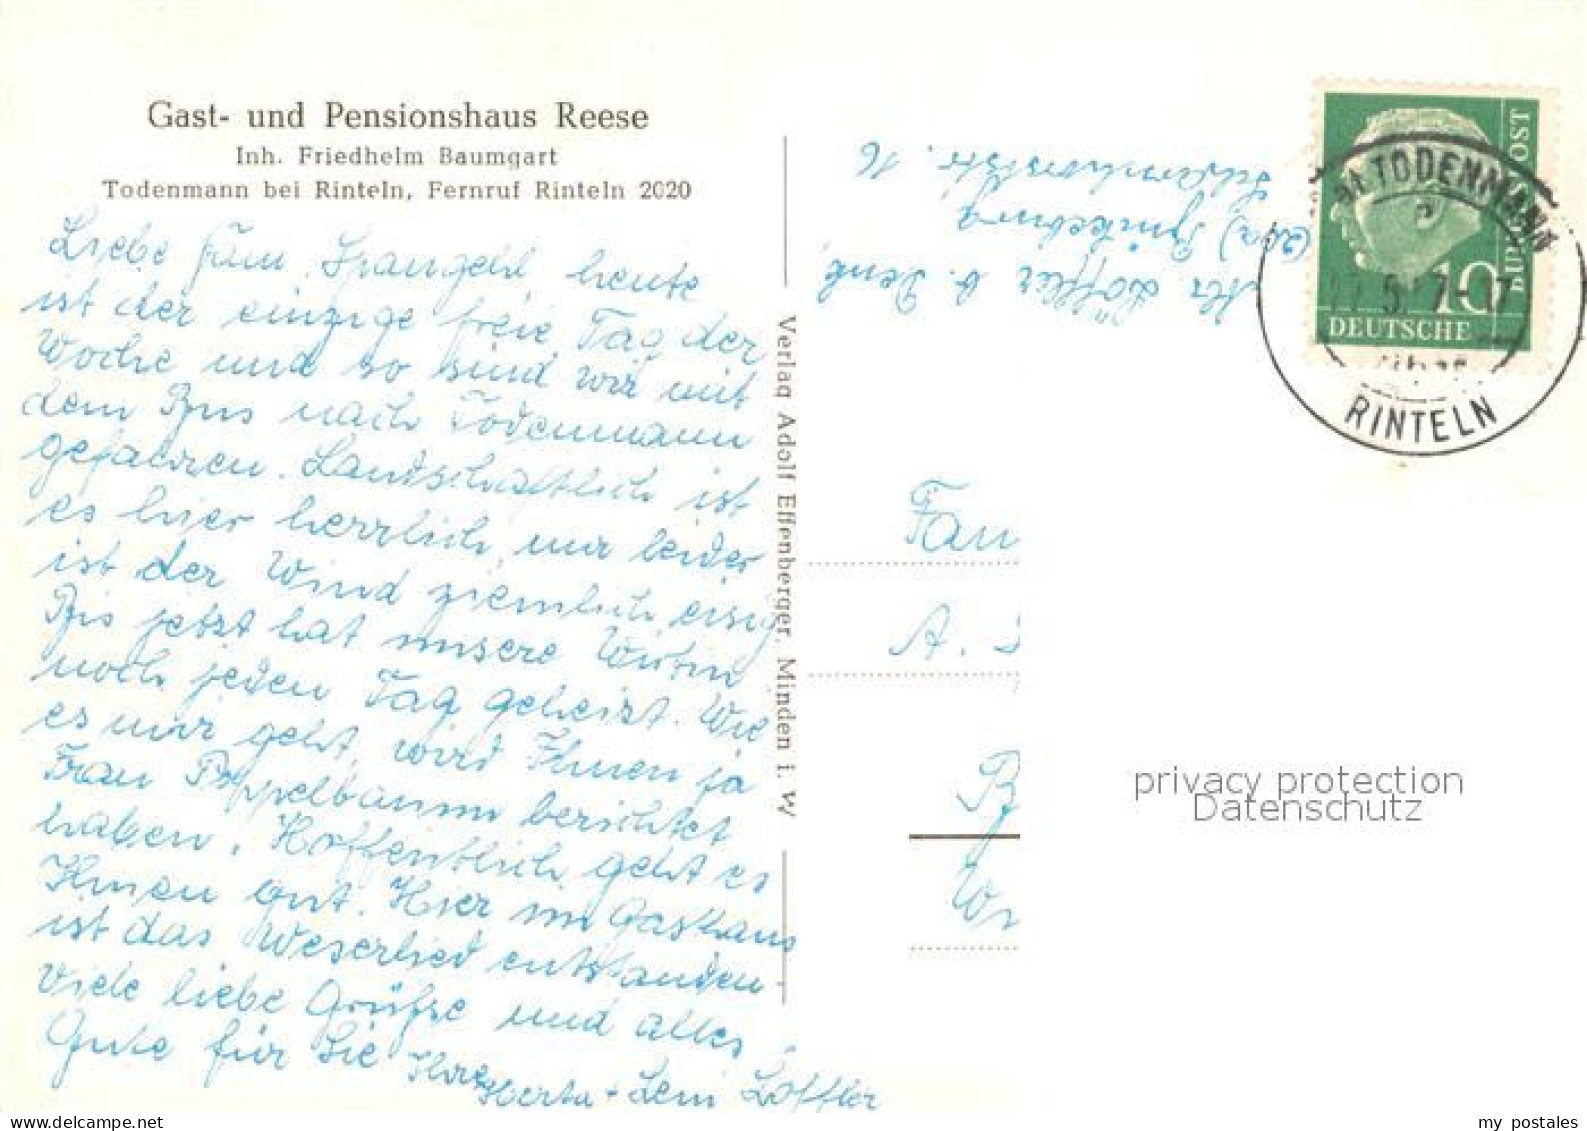 Gast- und Pensionshaus Reese
Inh. Friedhelm Baumgart
Todenmann bei Rinteln, Fernruf Rinteln 2020
Liebe Fam. heute
ist der einzige freie Tag der
Woche und so sind wir mit
dem Bus nach Todenmann
gefahren. Landschaftlich ist
es hier herrlich, nur leider
ist der Wind ziemlich eisig
Bis jetzt hat unsere Wirtin
noch jeden Tag geheizt. Wie
es mir geht, wird Ihnen ja
Frau Poppelbaum berichtet
haben. Hoffentlich geht es
Ihnen gut. Hier im Gasthaus
ist das Weserlied entstanden.
Viele liebe Grüße und alles
Gute für Sie Ihre
Herta + Leni Löffler
Verlag Adolf Effenberger, Minden i. W
Abs. Löffler b. Denk
(20a) Bückeburg
16
TODENMANN
RINTELN
DEUTSCHE
BUNDESPOST
10
Fam
A.
B
privacy protection
Datenschutz
my postales